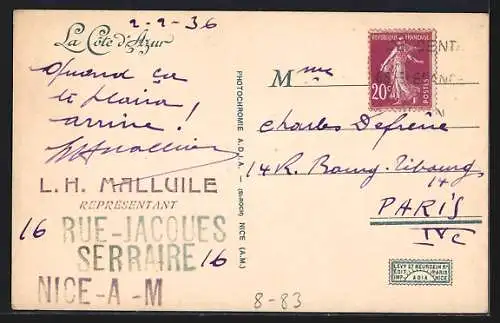 2-2-36
La Côte d'Azur
Quand ça
te plaira,
arrive!
L.H. MALLUILE
REPRÉSENTANT
16 RUE-JACQUES
SERRAIRE 16
NICE-A-M
PHOTOCHROMIE A.D.I.A. — NICE (A.M.)
RÉPUBLIQUE FRANÇAISE
20c
POSTES
Mme
Charles Defreine
14 R. Bourg-Tibourg
14
PARIS
IVe
LEVY ET NEURDEIN RS
ÉDIT. PARIS
IMP. ADIA NICE
8-83